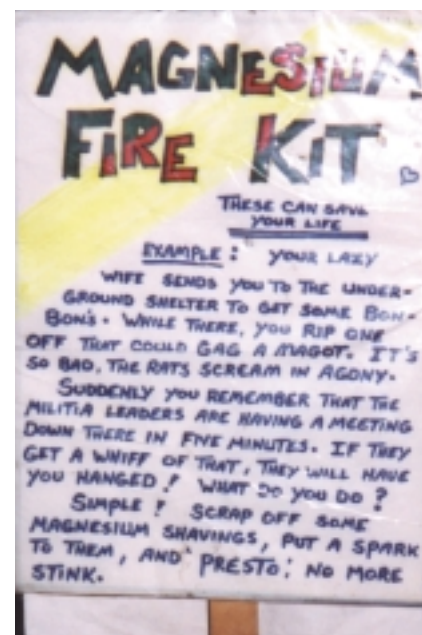 MAGNESIUM
FIRE KIT.
THESE CAN SAVE
YOUR LIFE
EXAMPLE: YOUR LAZY
WIFE SENDS YOU TO THE UNDER-
GROUND SHELTER TO GET SOME BON-
BON'S. WHILE THERE, YOU RIP ONE
OFF THAT COULD GAG A MAGOT. IT'S
SO BAD, THE RATS SCREAM IN AGONY.
SUDDENLY YOU REMEMBER THAT THE
MILITIA LEADERS ARE HAVING A MEETING
DOWN THERE IN FIVE MINUTES. IF THEY
GET A WHIFF OF THAT, THEY WILL HAVE
YOU HANGED! WHAT DO YOU DO?
SIMPLE! SCRAP OFF SOME
MAGNESIUM SHAVINGS, PUT A SPARK
TO THEM, AND PRESTO: NO MORE
STINK.